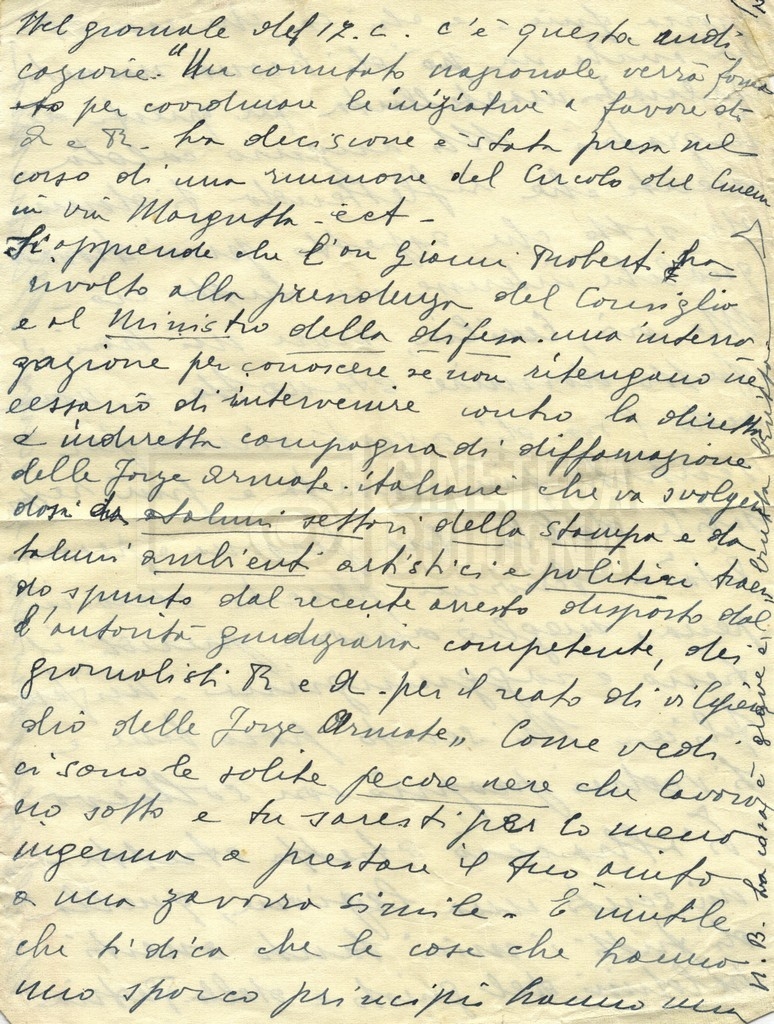 Nel giornale del 17. c. c'è questa indi
cazione. "Un comitato nazionale verrà forma
to per coordinare le iniziative a favore di
A e R. La decisione è stata presa nel
corso di una riunione del Circolo del Cinem
in via Margutta - ect -
Si apprende che l'on Gianni Roberti ha
rivolto alla presidenza del Consiglio
e al Ministro della difesa. una interro
gazione per conoscere se non ritengano ne
cessario di intervenire contro la diretta
e indiretta campagna di diffamazione
delle Forze armate. italiane che va svolgen
dosi da taluni settori della stampa e da
taluni ambienti artistici e politici traen
do spunto dal recente arresto disposto dal
l'autorità giudiziaria competente, dei
giornalisti R e A. per il reato di vilipen
dio delle Forze Armate„ Come vedi
ci sono le solite pecore nere che lavora
no sotto e tu saresti per lo meno
ingenua a prestare il tuo aiuto
a una zavorra simile. È inutile
che ti dica che le cose che hanno
uno sporco principio hanno una
N.B. La cosa è grave e brutta